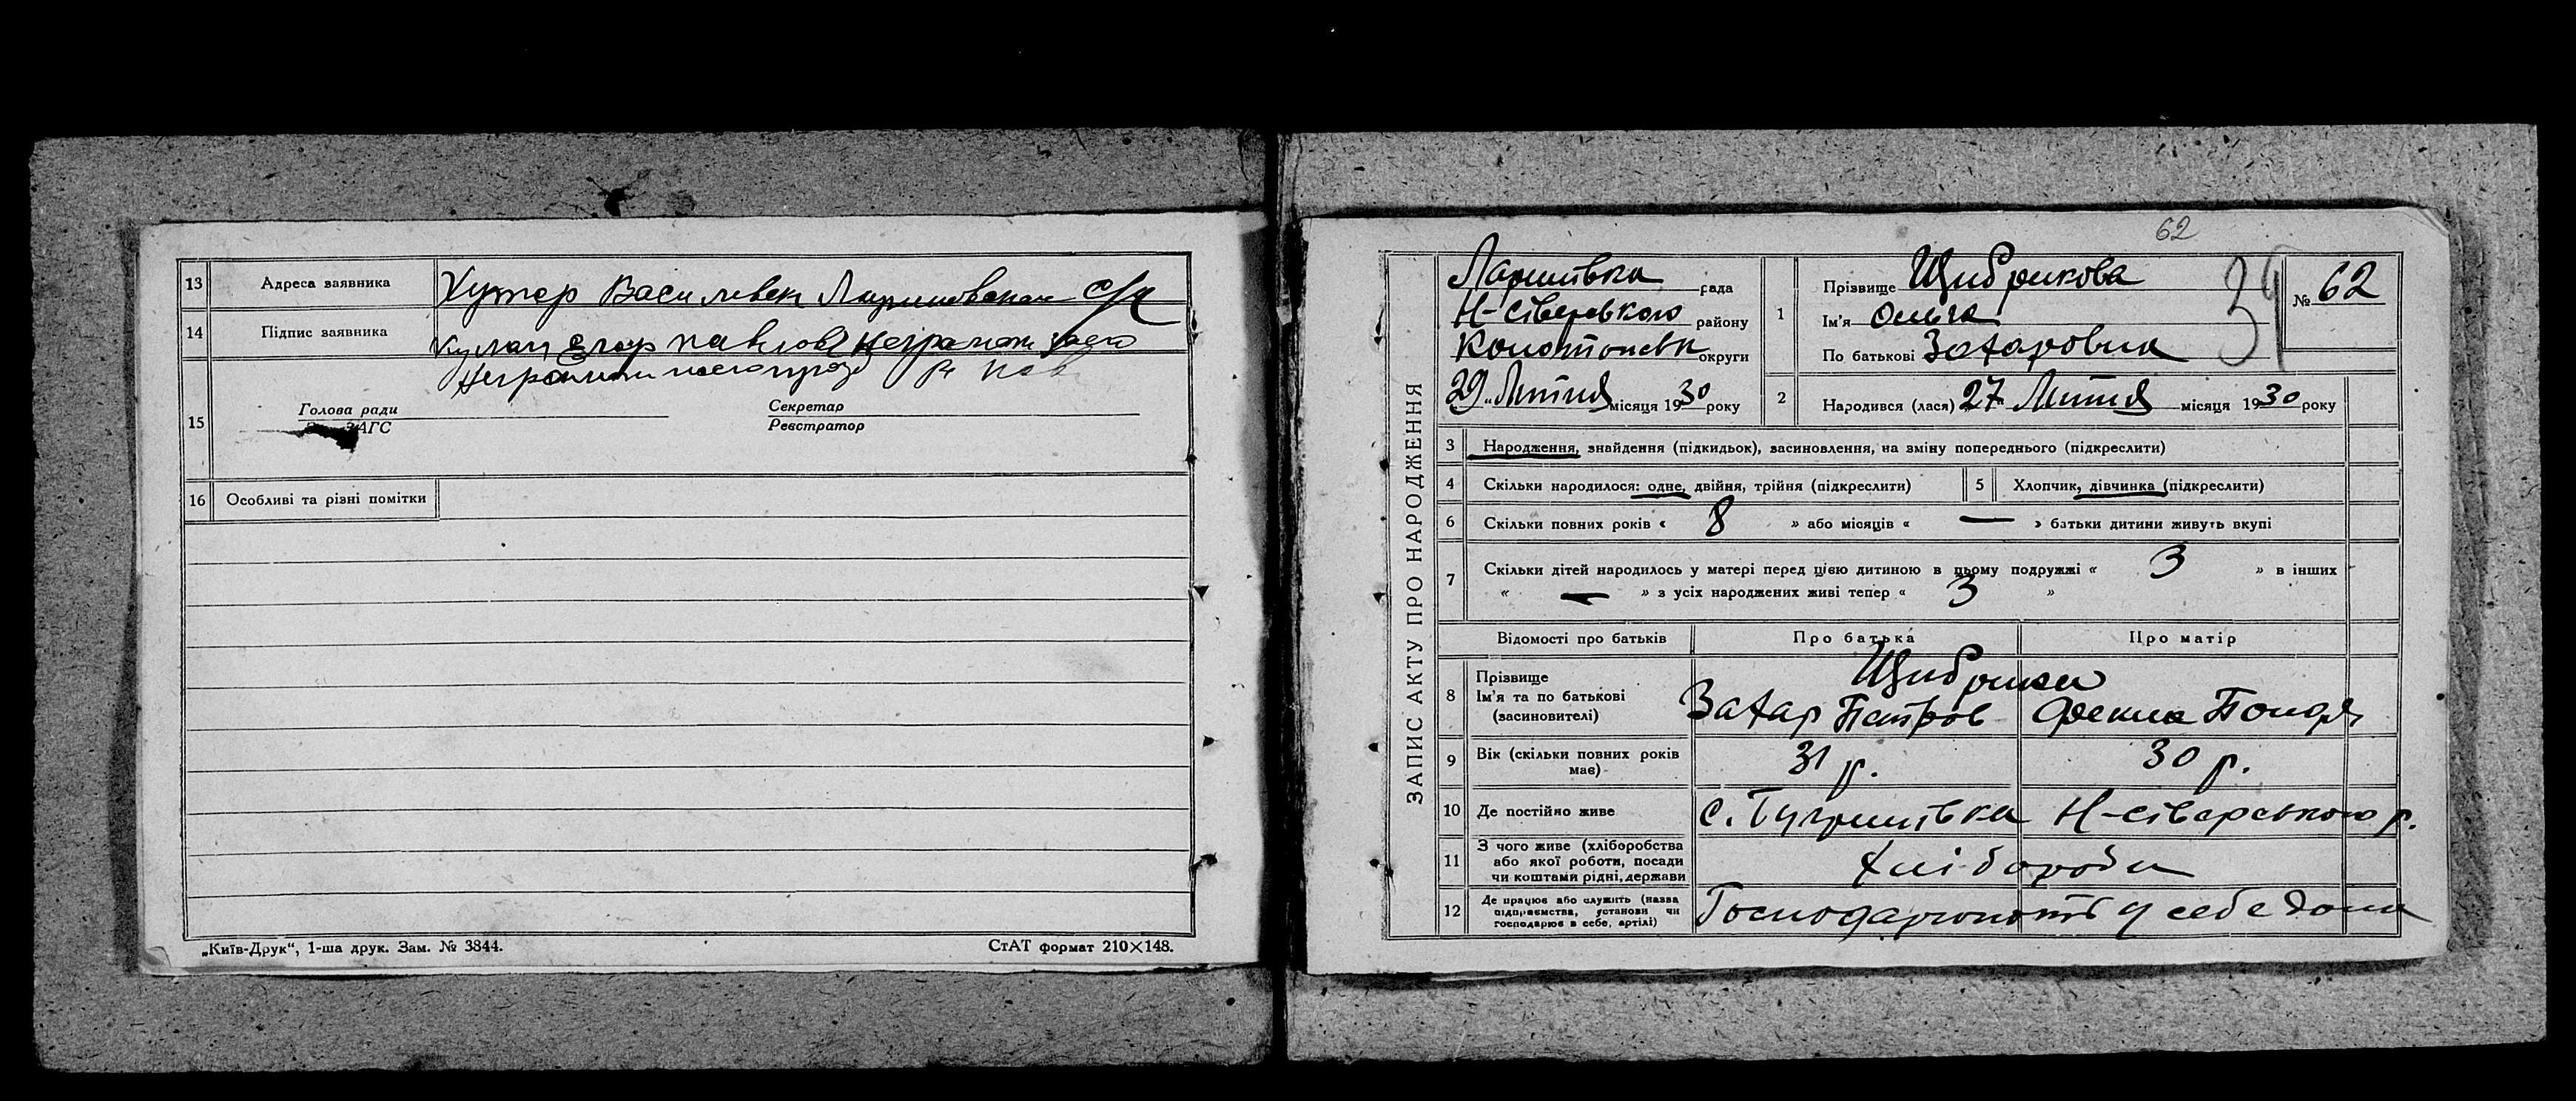 13 Адреса заявника Хутор Василевск Лариновская с/р
14 Підпис заявника Егор Павлов
15
Голова ради Секретар
ЗАГС Реєстратор
16 Особливі та різні помітки
„Київ-Друк“, 1-ша друк. Зам. № 3844. СтАТ формат 210×148.
62
ЗАПИС АКТУ ПРО НАРОДЖЕННЯ
рада
Н-Сіверського району
Конотопськ округи
29 Лютия місяця 1930 року
1 Прізвище Щибрикова
Ім'я Ольга
По батькові Захаровна
39
№ 62
2 Народився (лася) 27 Лютия місяця 1930 року
3 Народження, знайдення (підкидьок), засиновлення, на зміну попереднього (підкреслити)
4 Скільки народилося: одне, двійня, трійня (підкреслити) 5 Хлопчик, дівчинка (підкреслити)
6 Скільки повних років « 8 » або місяців « — » батьки дитини живуть вкупі
7 Скільки дітей народилось у матері перед цією дитиною в цьому подружжі « 3 » в інших
« — » з усіх народжених живі тепер « 3 »
Відомості про батьків Про батька Про матір
8 Прізвище
Ім'я та по батькові
(засиновителі)
Щибрики
Захар Петров Фекла
9 Вік (скільки повних років має) 31 р. 30 р.
10 Де постійно живе с. Н-Сіверського р.
11 З чого живе (хліборобства
або якої роботи, посади
чи коштами рідні, держави
хлібороби
12 Де працює або служить (назва
підприємства, установи чи
господарює в себе, артілі)
Господарюють у себе дома